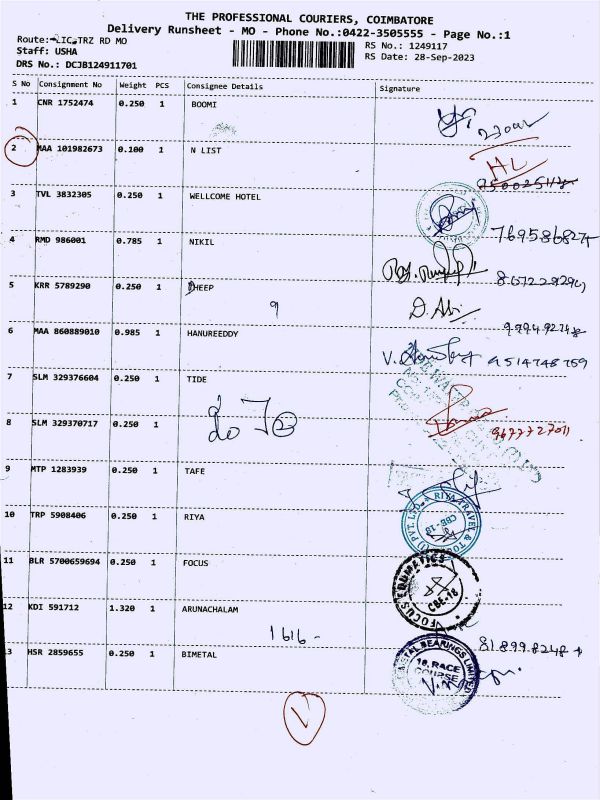 THE PROFESSIONAL COURIERS, COIMBATORE
Delivery Runsheet - MO - Phone No.:0422-3505555 - Page No.:1
Route:-LIC-TRZ RD MO
RS No.: 1249117
Staff: USHA
RS Date: 28-Sep-2023
DRS No.: DCJB124911701
S No Consignment No Weight PCS Consignee Details Signature
1 CNR 1752474 0.250 1 BOOMI
2 MAA 101982673 0.100 1 N LIST
3 TVL 3832305 0.250 1 WELLCOME HOTEL
7695868274
4 RMD 986001 0.785 1 NIKIL
5 KRR 5789290 0.250 1 DHEEP
9
D. Abi
6 MAA 860889010 0.985 1 HANUREEDDY
9514748759
7 SLM 329376604 0.250 1 TIDE
8 SLM 329370717 0.250 1
9677727011
9 MTP 1283939 0.250 1 TAFE
10 TRP 5908406 0.250 1 RIYA
RIYA TRAVEL & TO
(I) PVT. LTD.
CBE-18
11 BLR 5700659694 0.250 1 FOCUS
FOCUS EDUMATICS
CBE-18
12 KDI 591712 1.320 1 ARUNACHALAM
1616-
13 HSR 2859655 0.250 1 BIMETAL
BIMETAL BEARINGS LIMITED
18, RACE
COURSE